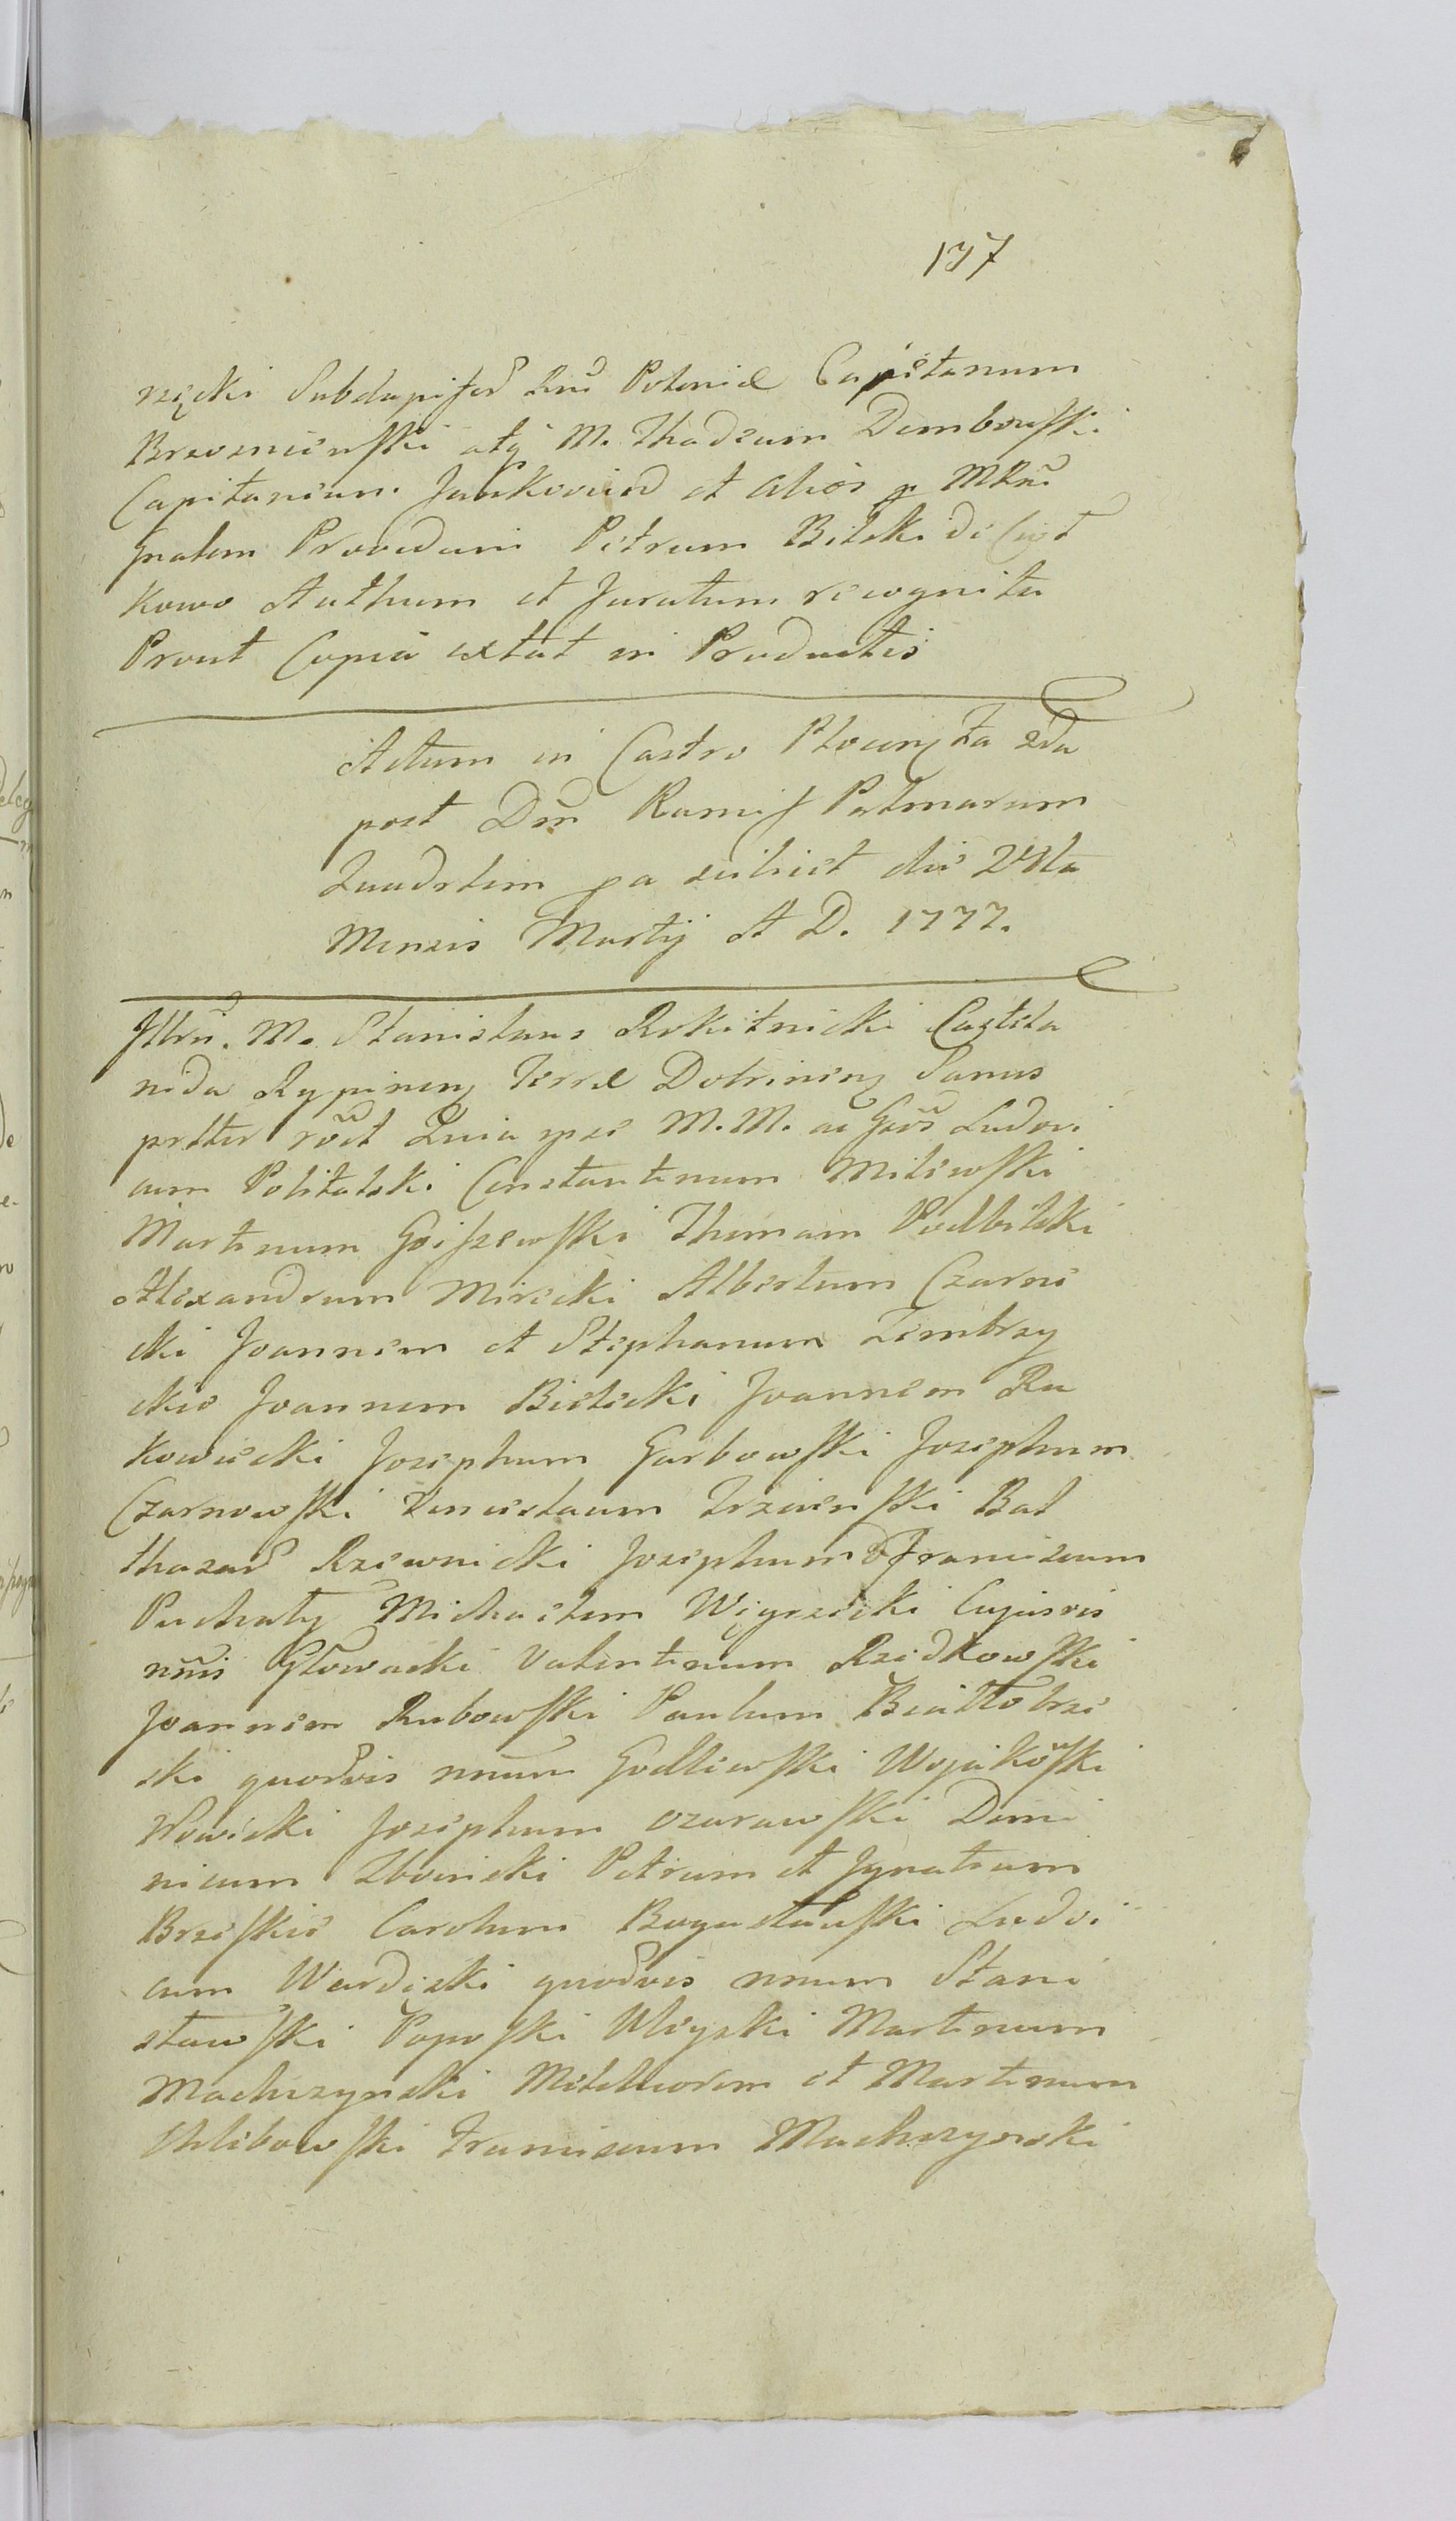 177
rzęcki Subdapiferũ Rni Poloniæ Capitanum
Brzezniensski atq M. Thadeum Dembowsski
Capitaneum Jankovieñ et Alios p MRni
Gnalem Providum Petrum Bilski de Ciot
kowo Authum et Juratum recognita
Prout Copia extat in Productis
Actum in Castro Plocen fra 2da
post Dm Ramis Palmarum
Quadrlem pa scilicet die 24ta
Mensis Martij A D. 1777.
Illrı. M. Stanislaus Rokitnicki Castela
nida Rypinen Terræ Dobrinen Sanus
prtter rõct Quia ipse M. M. ac Gsõs Ludovi
cum Politalski Constantinum Milewsski
Martinum Goiszewsski Thomam Podbilski
Alexandrum Mirecki Albertum Czarne
cki Joannem et Stephanum Zembrzy
ckie Joannem Bielicki Joannem Ra
kowiecki Josephum Garbowsski Josephum
Czarnowsski Venceslaum Trzcinsski Bal
thazarũ Rzewnicki Josephum & Franciscum
Puchały Michaelem Węgrzecki Cujusvis
nnis Głowacki Valentinum Rzedkowsski
Joannem Rubowsski Paulum Białłobrze
ski quorvis nnum Godlewsski Wojcikõsski
Nowicki Josephum Ozarawsski Domi
nicum Zboincki Petrum et Ignatium
Brzesskie Carolum Bogusławsski Ludvi
cum Wardęski quodvis nnum Stani
sławsski Poposski Uleyski Martinum
Machczynski Melchiorem et Martinum
Chlibowsski Franciscum Machczynski